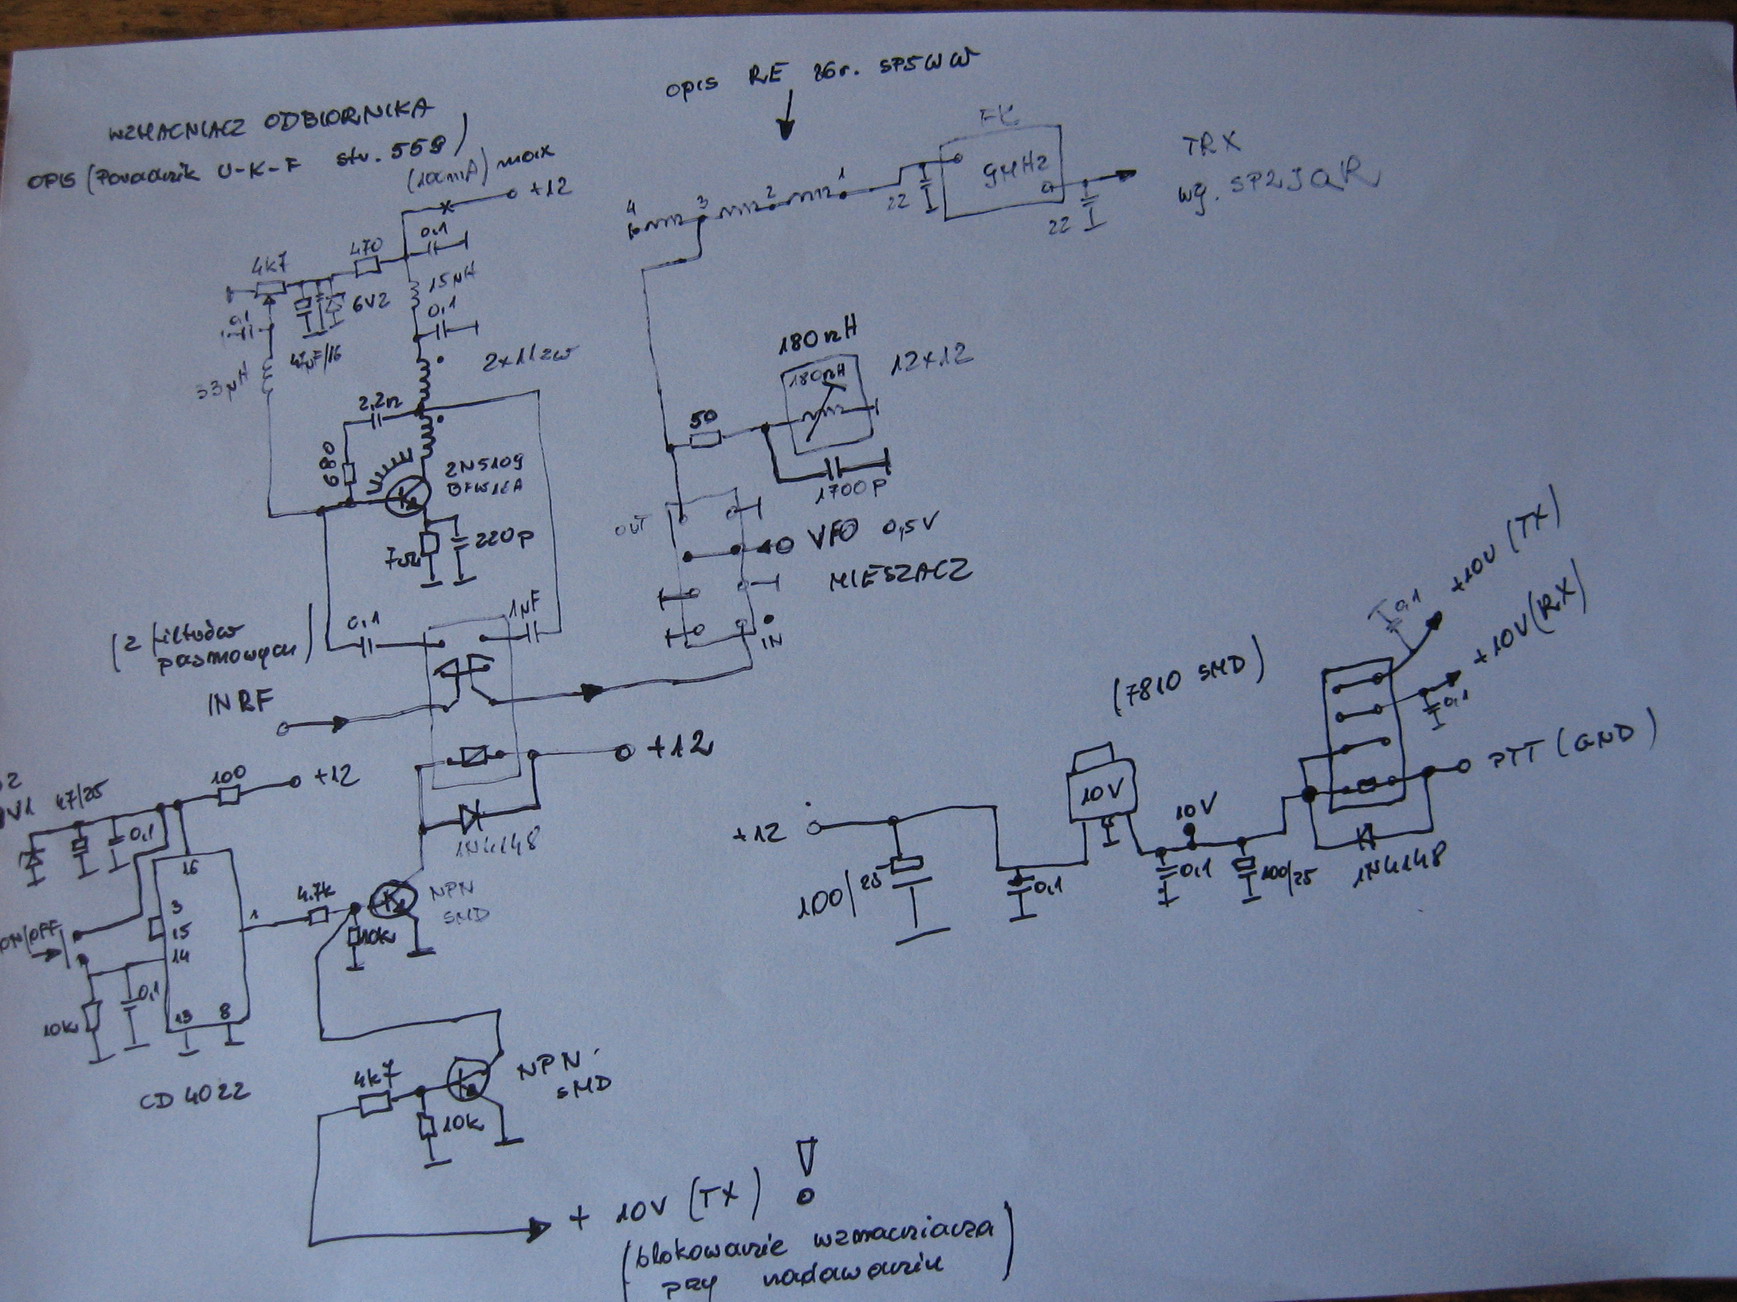 WZMACNIACZ ODBIORNIKA
OPIS (Poradnik U-K-F str. 559)
(100mA) max
+12
OPIS RE 86r. SP5WW
FK
9MHz
TRX
wg. SP2JQR
22
22
4 3 2 1
4k7
470
0,1
15µH
6V2
0,1
0,1
47µF/16
33µH
2x11zw
2,2n
680
2N5109
BFW16A
7Ω
220p
180nH
180nH
12x12
50
1700P
OUT
VFO 0,5V
MIESZACZ
IN
(z filtrów
pasmowych)
INRF
0,1
1µF
+12
1N4148
100
+12
47/25
0,1
16
3
15
14
13
8
1
4.7k
NPN
SMD
10k
ON/OFF
10k
0,1
CD4022
4k7
10k
NPN
SMD
+ 10V (TX)
(blokowanie wzmacniacza
przy nadawaniu)
(7810 SMD)
10V
+12
100/25
0,1
10V
0,1
100/25
0,1
+10V (TX)
0,1
+10V (RX)
PTT (GND)
1N4148